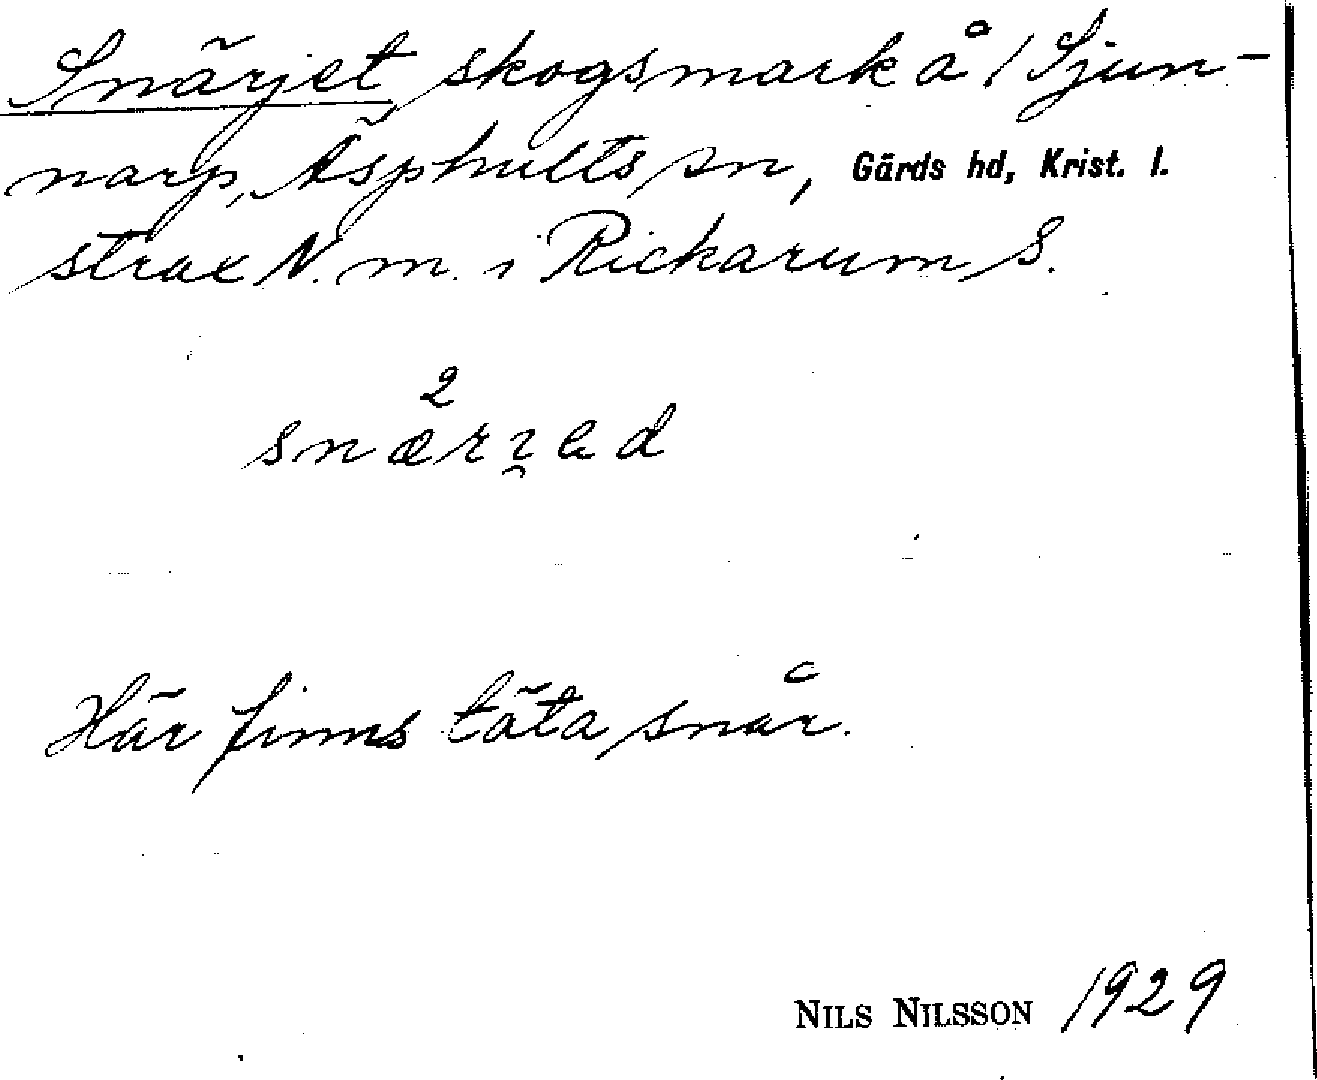 Snärjet, skogsmark å 1 Sjun-
narp, Äsphults sn, Gärds hd, Krist. l.
strax N. m. i Rickarum S.
2
snærɿed
Här finns täta snår.
NILS NILSSON 1929